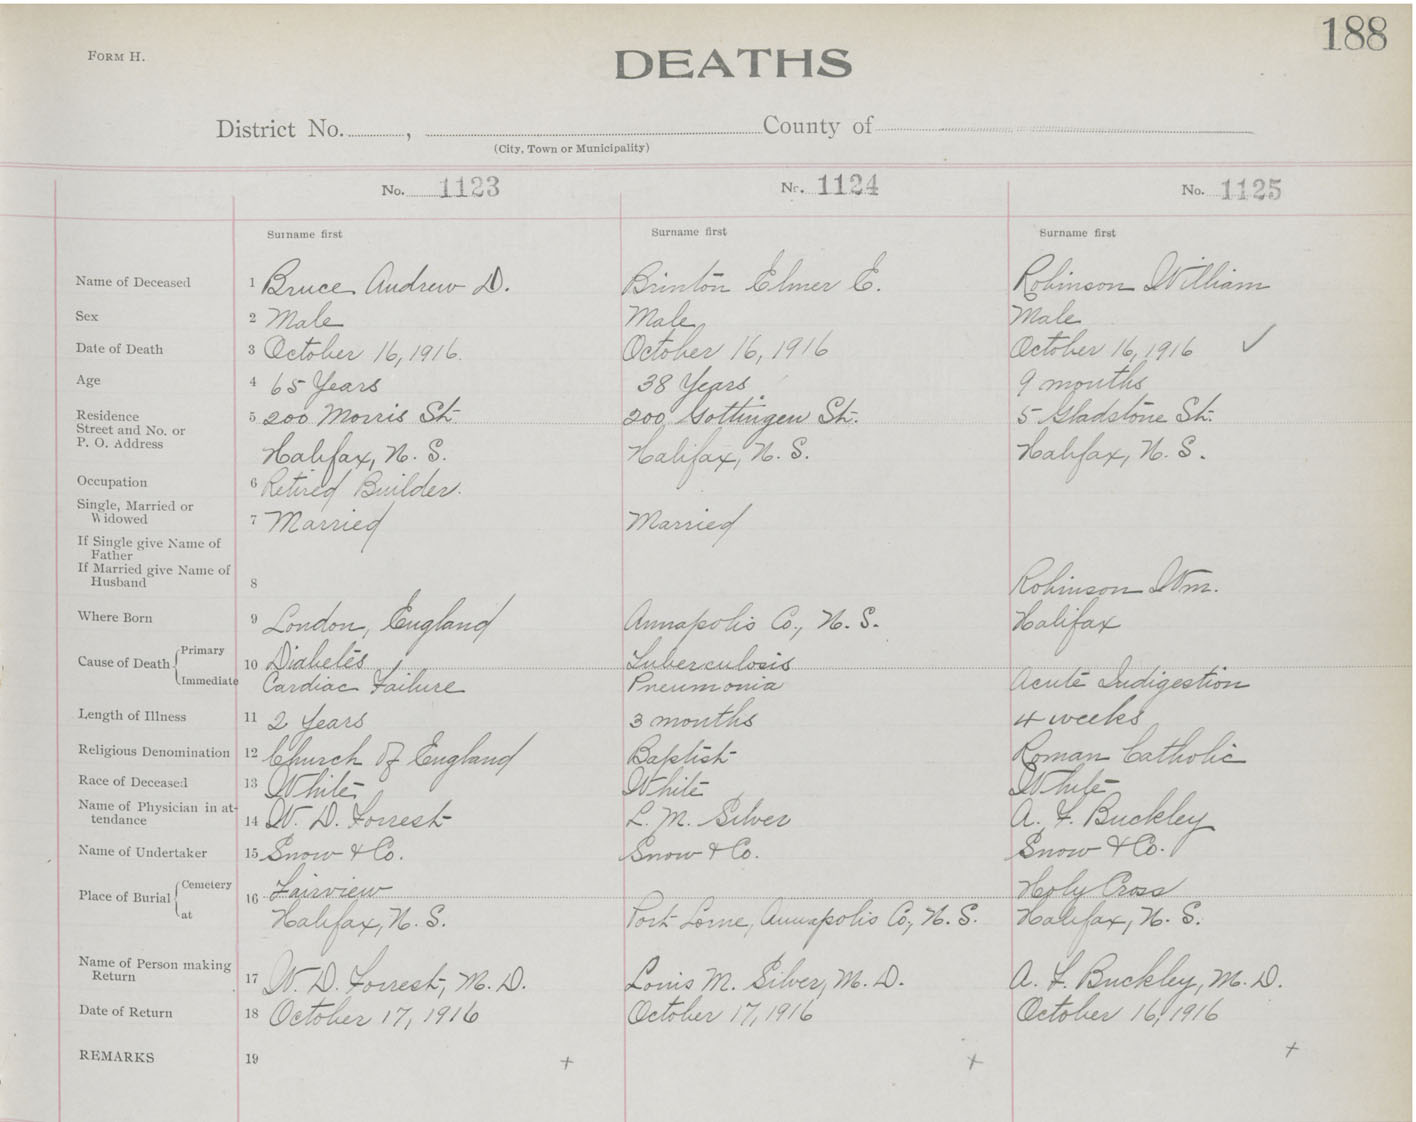 188
FORM H.
DEATHS
District No. , County of
(City, Town or Municipality)
No. 1123 No. 1124 No. 1125
Surname first Surname first Surname first
Name of Deceased 1 Bruce Andrew D. Brinton Elmer E. Robinson William
Sex 2 Male Male Male
Date of Death 3 October 16, 1916. October 16, 1916 October 16, 1916 ✓
Age 4 65 Years 38 Years 9 months
Residence 5 200 Morris St. 200 Gottingen St. 5 Gladstone St.
Street and No. or
P. O. Address Halifax, N. S. Halifax, N. S. Halifax, N. S.
Occupation 6 Retired Builder.
Single, Married or
Widowed 7 Married Married
If Single give Name of
Father
If Married give Name of
Husband 8 Robinson Wm.
Where Born 9 London, England Annapolis Co., N. S. Halifax
Cause of Death Primary 10 Diabetes Tuberculosis
Immediate Cardiac Failure Pneumonia Acute Indigestion
Length of Illness 11 2 Years 3 months 4 weeks
Religious Denomination 12 Church of England Baptist Roman Catholic
Race of Deceased 13 White White White
Name of Physician in at-
tendance 14 W. D. Forrest L. M. Silver A. F. Buckley
Name of Undertaker 15 Snow & Co. Snow & Co. Snow & Co.
Place of Burial Cemetery 16 Fairview Holy Cross
at Halifax, N. S. Port Lorne, Annapolis Co, N. S. Halifax, N. S.
Name of Person making
Return 17 W. D. Forrest, M. D. Louis M. Silver, M. D. A. F. Buckley, M. D.
Date of Return 18 October 17, 1916 October 17, 1916 October 16, 1916
REMARKS 19 + + +